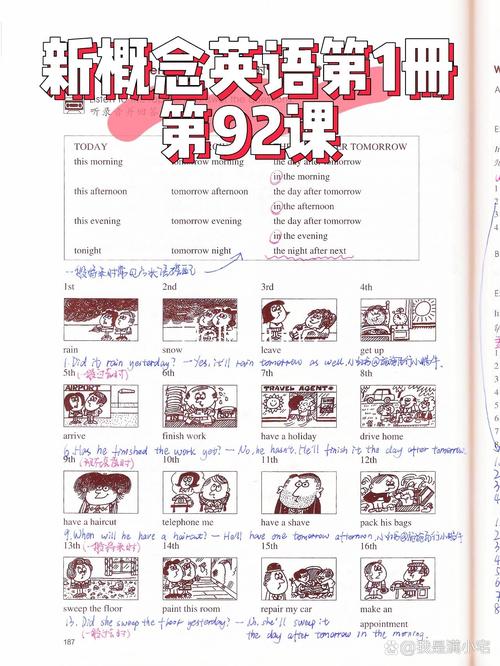 新概念英语第1册
第92课
听录音并回答
TODAY TOMORROW
this morning tomorrow morning the day after tomorrow
in the morning
this afternoon tomorrow afternoon the day after tomorrow
in the afternoon
this evening tomorrow evening the day after tomorrow
in the evening
tonight tomorrow night the night after next
1st 2nd 3rd 4th
rain snow leave get up
1. Did it rain yesterday? — Yes, it'll rain tomorrow as well.
5th (一般过去时) 6th 7th 8th
AIRPORT TRAVEL AGENT
arrive finish work have a holiday drive home
6. Has he finished the work yet? — No, he hasn't. He'll finish it the day after tomorrow.
9th (现在完成时) 10th 11th 12th
have a haircut telephone me have a shave pack his bags
9. When will he have a haircut? — He'll have one tomorrow afternoon.
13th (一般将来时) 14th 15th 16th
sweep the floor paint this room repair my car make an
appointment
13. Did she sweep the floor yesterday? — No. She'll sweep it
(一般过去时) the day after tomorrow in the morning.
187
@我是满小宅